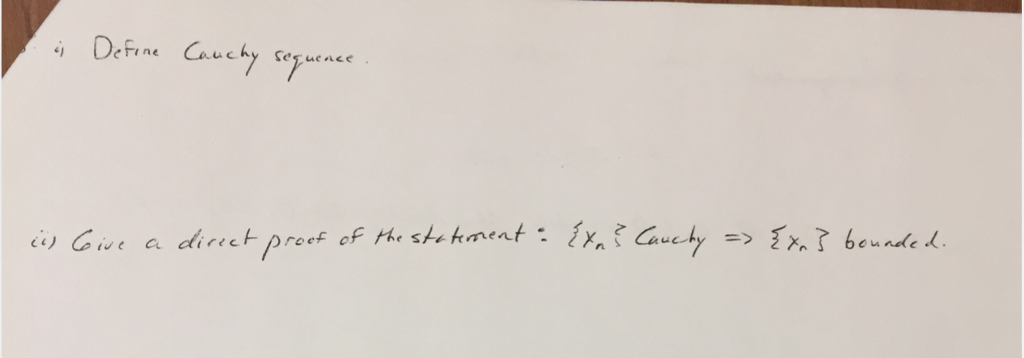 i) Define Cauchy sequence.
ii) Give a direct proof of the statement: {xₙ} Cauchy => {xₙ} bounded.